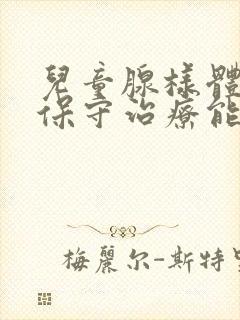 兒童腺樣體
保守治療能
梅麗尔-斯特